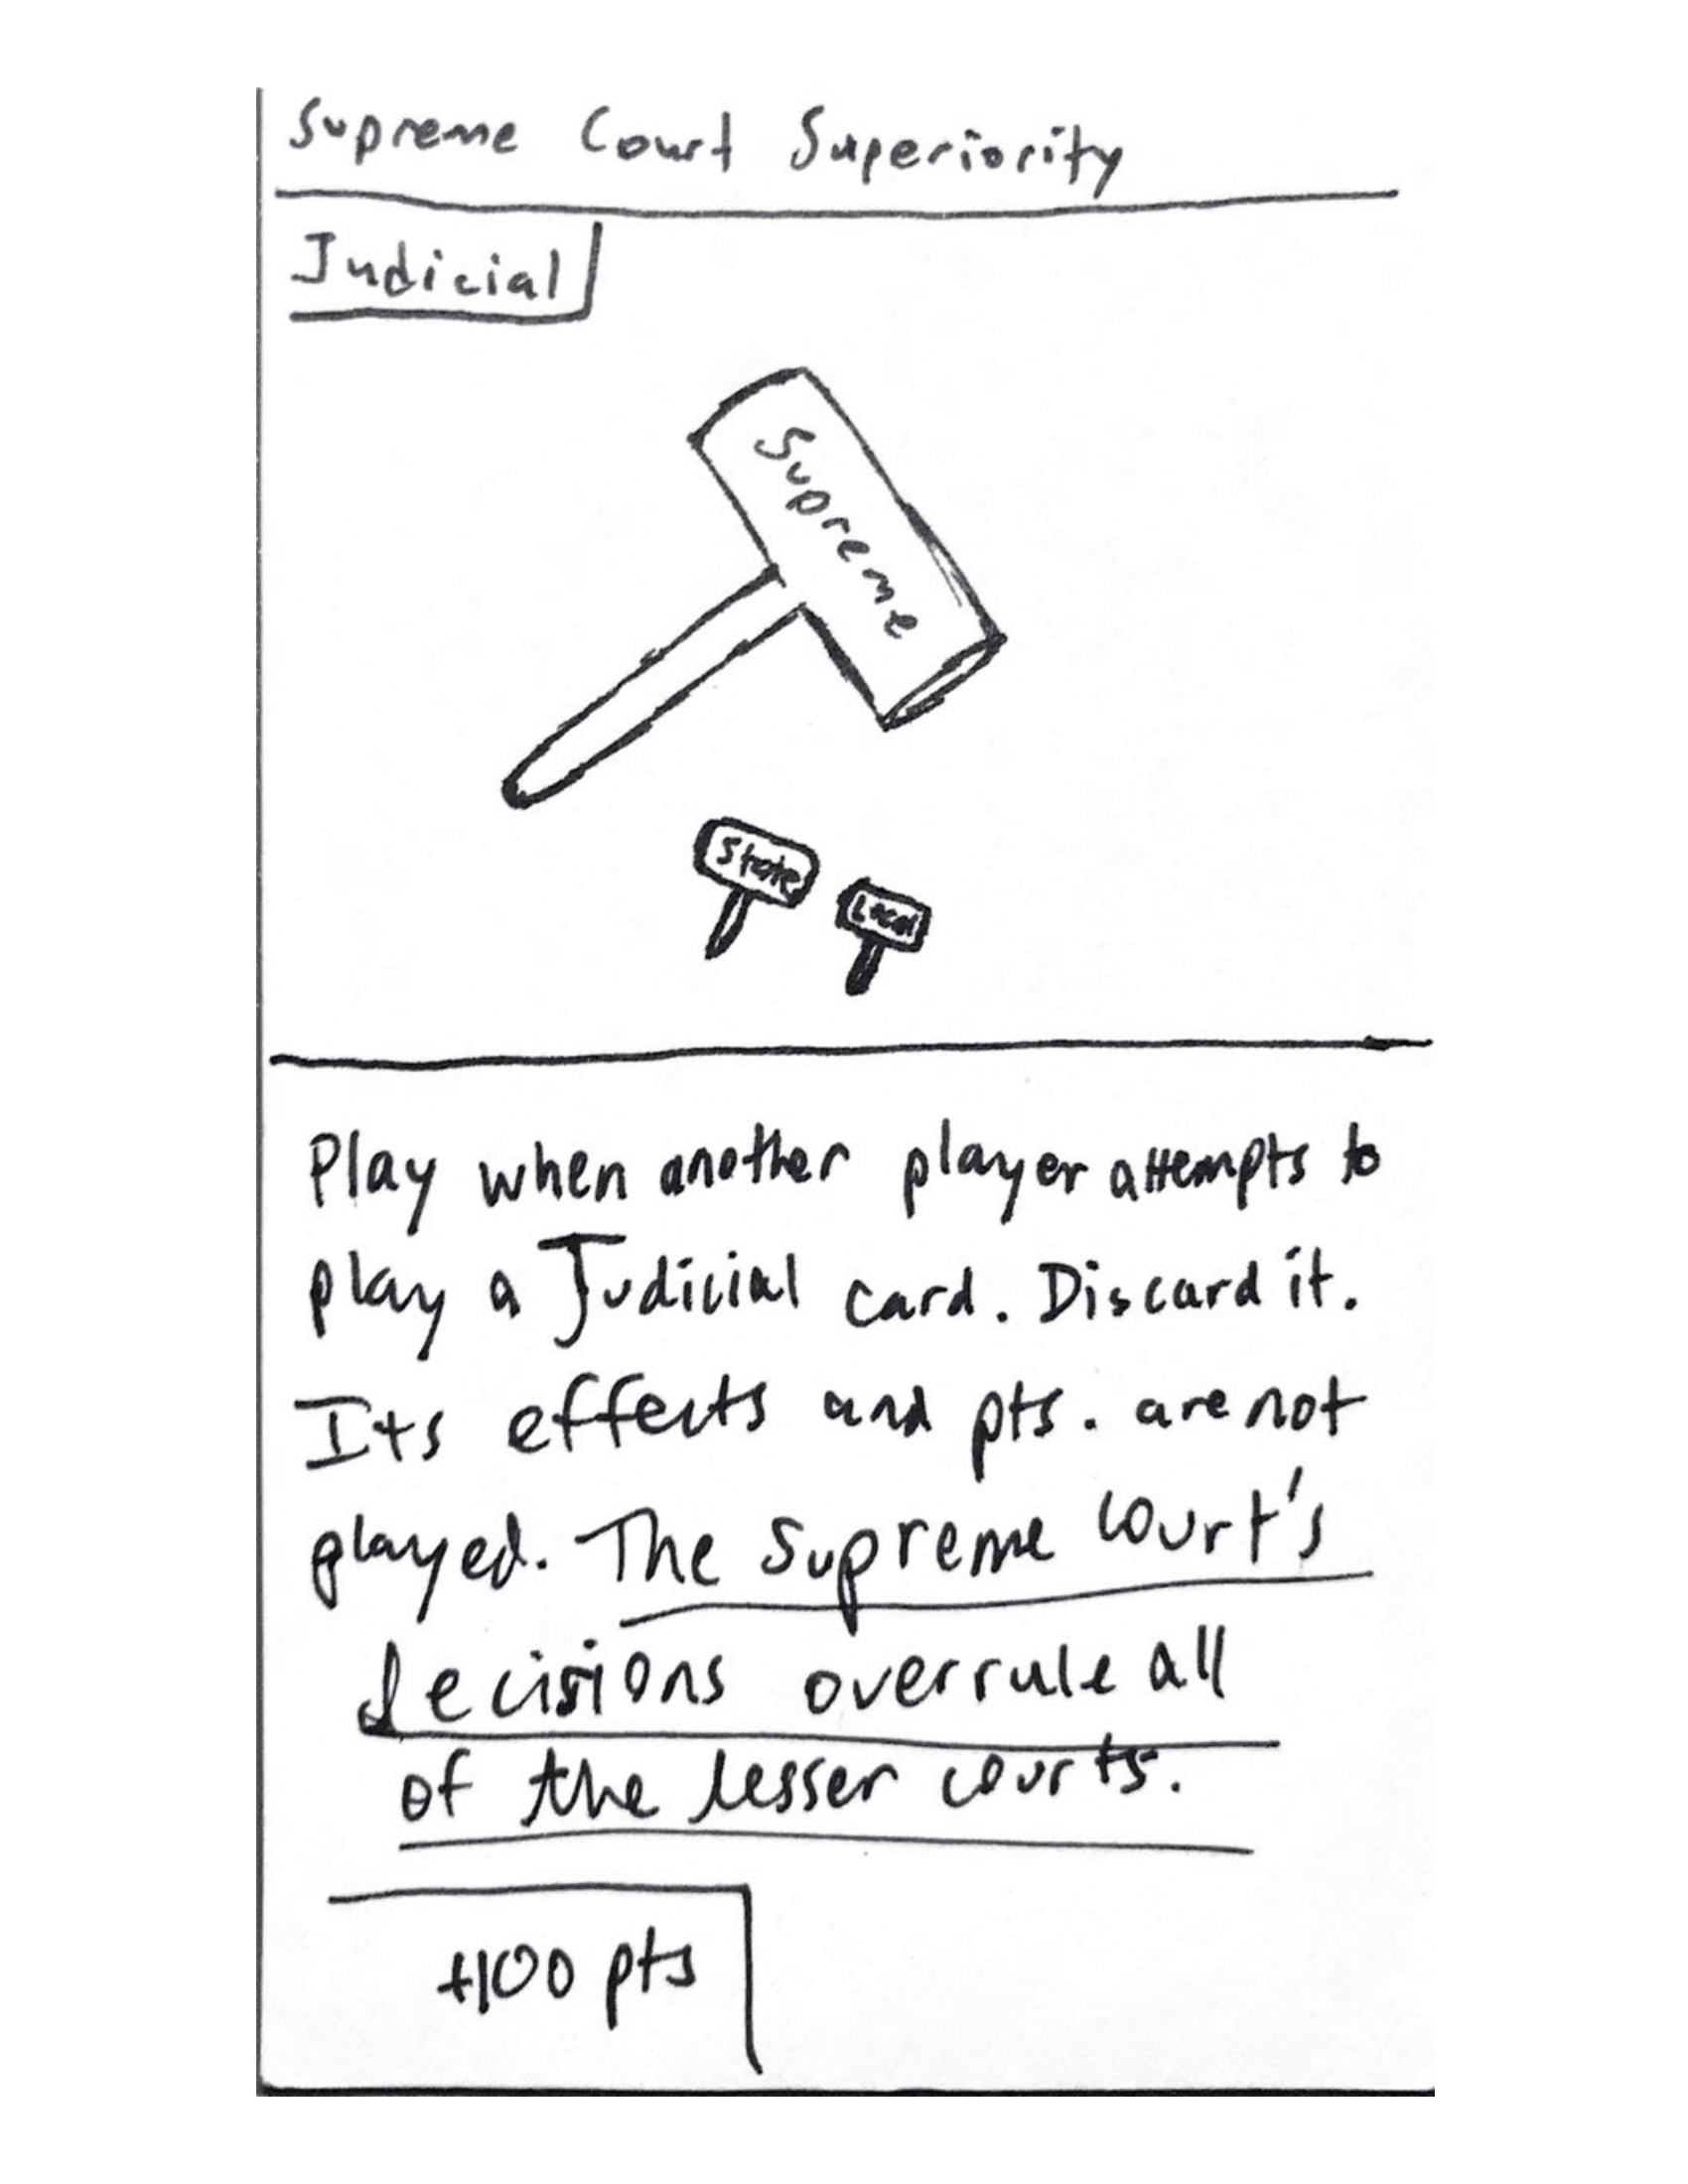 Supreme Court Superiority
Judicial
Supreme
State
Local
Play when another player attempts to
play a Judicial card. Discard it.
Its effects and pts. are not
played. The Supreme Court's
decisions overrule all
of the lesser courts.
+100 pts